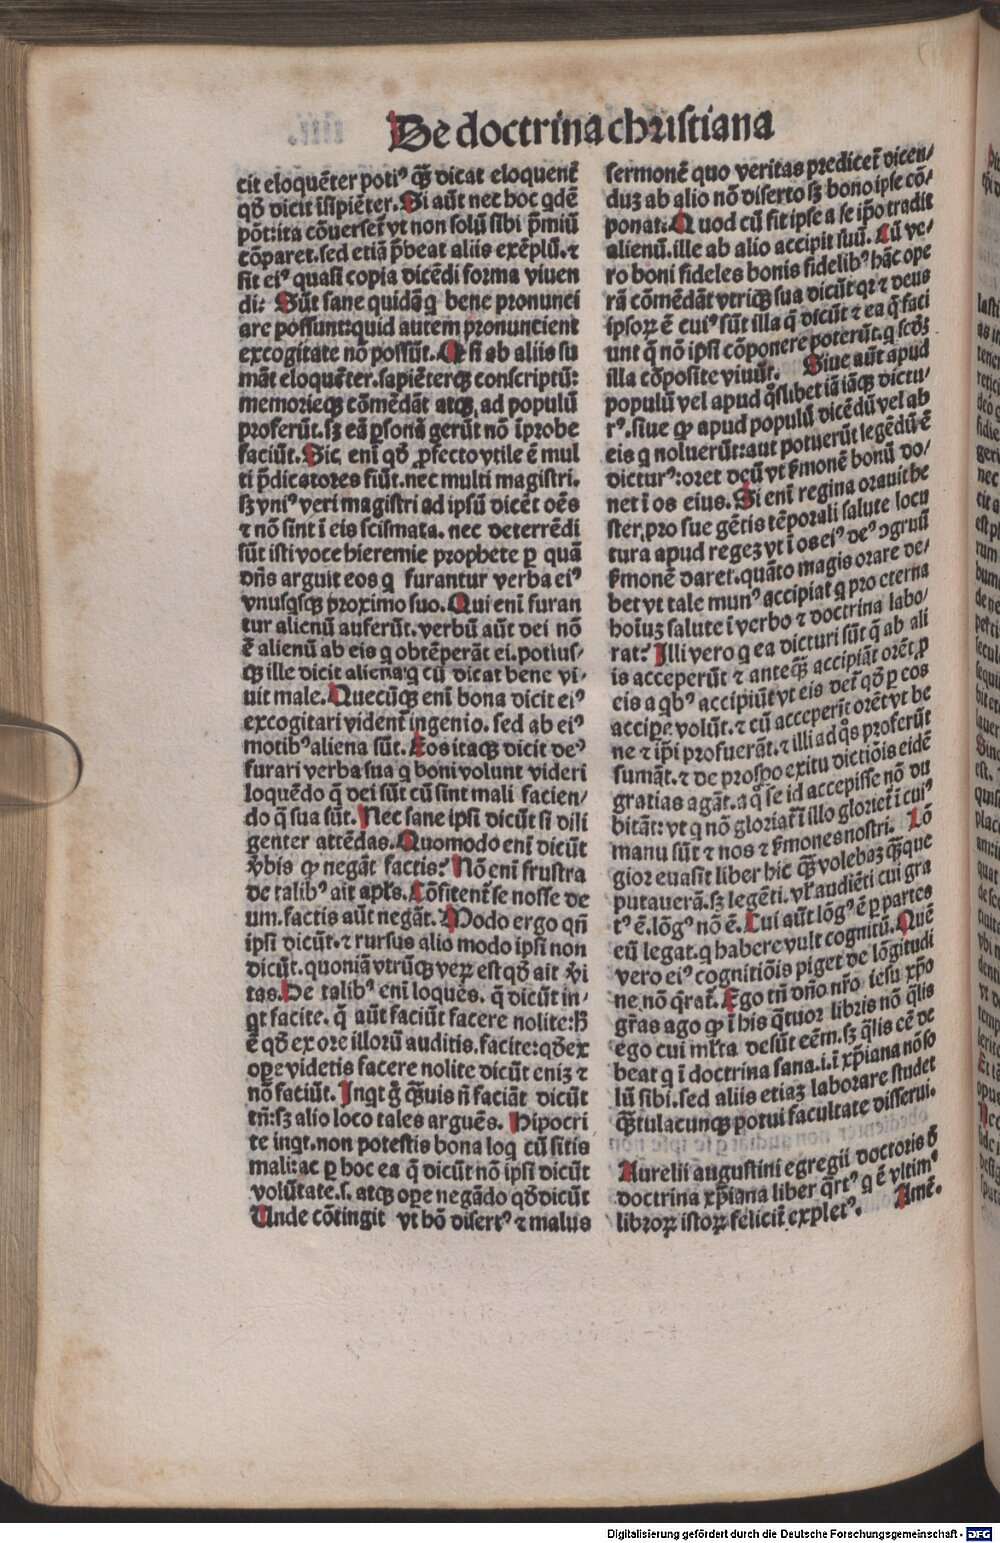 De doctrina christiana
cit eloquēter potiꝰ q̄ꝫ dicat eloquent̄
qd̄ dicit īsipiēter. Si aūt nec hoc qdē
pōt: ita cōuerset̄ vt non solū sibi p̄miū
cōparet. sed etiā p̄beat aliis exēplū. ⁊
sit eiꝰ quasi copia dicēdi forma viuen
di: Sūt sane quidā q bene pronunci
are possunt: quid autem pronuncient
excogitate nō possūt. Qr̄ si ab aliis su
māt eloquēter. sapiēterqꝫ conscriptū:
memorieqꝫ cōmēdāt atqꝫ ad populū
proferūt. sꝫ eā ꝑsonā gerūt nō īprobe
faciūt. Sic enī qd̄ ꝓfecto vtile ē mul
ti p̄dicatores fiūt. nec multi magistri.
sꝫ vniꝰ veri magistri ad ipsū dicēt oēs
⁊ nō sint ī eis scismata. nec deterrēdi
sūt isti voce hieremie prophete ꝑ quā
dn̄s arguit eos q furantur verba eiꝰ
vnusqsqꝫ proximo suo. Qui enī furan
tur alienū auferūt. verbū aūt dei nō
ē alienū ab eis q obtēperāt ei. potius/
qꝫ ille dicit aliena q cū dicat bene vi/
uit male. Quecūqꝫ enī bona dicit eiꝰ
excogitari vident̄ ingenio. sed ab eiꝰ
motibꝰ aliena sūt. Eos itaqꝫ dicit deꝰ
furari verba sua q boni volunt videri
loquēdo q̄ dei sūt cū sint mali facien/
do q̄ sua sūt. Nec sane ipsi dicūt si dili
genter attēdas. Quomodo enī dicūt
v̄bis ꝙ negāt factis? Nō enī frustra
de talibꝰ ait apl̄s. Cōfitent̄ se nosse de
um. factis aūt negāt. Modo ergo qn̄
ipsi dicūt. ⁊ rursus alio modo ipsi non
dicūt. quoniā vtrūqꝫ veꝝ est qd̄ ait v̄i
tas. De talibꝰ enī loquēs. q̄ dicūt in/
qt facite. q̄ aūt faciūt facere nolite: h̄
ē qd̄ ex ore illorū auditis. facite: qd̄ ex
ope videtis facere nolite dicūt eniꝫ ⁊
nō faciūt. Inqt g̊ q̄ꝫuis n̄ faciāt dicūt
tn̄: sꝫ alio loco tales arguēs. Hipocri
te inqt. non potestis bona loq cū sitis
mali: ac ꝑ hoc ea q̄ dicūt nō ipsi dicūt
volūtate. s. atqꝫ ope negādo qd̄ dicūt
Unde cōtingit vt hō disertꝰ ⁊ malus
sermonē quo veritas predicet̄ dicen/
duꝫ ab alio nō diserto sꝫ bono ipse cō/
ponat. Quod cū fit ipse a se ip̄o tradit
alienū. ille ab alio accipit suū. Cū ve/
ro boni fideles bonis fidelibꝰ hāc ope
rā cōmēdāt vtriqꝫ sua dicūt qr ⁊ deus
ipsoꝝ ē cuiꝰ sūt illa q̄ dicūt ⁊ ea q̄ faci
unt q̄ nō ipsi cōponere poterūt. q scd̄ꝫ
illa cōposite viuūt. Siue aūt apud
populū vel apud qslibet iā iāqꝫ dictu/
rꝰ. siue ꝙ apud populū dicēdū vel ab
eis q noluerūt: aut potuerūt legēdū ē
dicturꝰ: oret deū vt s̄monē bonū do/
net ī os eius. Si enī regina orauit he
ster. pro sue gētis tēporali salute locu
tura apud regeꝫ vt ī os eiꝰ deꝰ ꝯgruū
s̄monē daret. quāto magis orare de/
bet vt tale munꝰ accipiat q pro eterna
hoīuꝫ salute ī verbo ⁊ doctrina labo/
rat? Illi vero q ea dicturi sūt q̄ ab ali
is acceperūt ⁊ anteq̄ꝫ accipiāt orēt ꝓ
eis a qbꝰ accipiūt vt eis det̄ qd̄ ꝑ eos
accipe volūt. ⁊ cū acceperīt orēt vt be
ne ⁊ ip̄i profuerāt. ⁊ illi ad qs proferūt
sumāt. ⁊ de prospo exitu dictiōis eidē
gratias agāt. a q̄ se id accepisse nō du
bitāt: vt q nō gloriat̄ ī illo gloriet̄ ī cuiꝰ
manu sūt ⁊ nos ⁊ s̄mones nostri. Lō
gior euasit liber hic q̄ꝫ volebaꝫ q̄ꝫque
putauerā. sꝫ legēti. vl̄ audiēti cui gra
tꝰ ē. lōgꝰ nō ē. Cui aūt lōgꝰ ē ꝑ partes
eū legat. q habere vult cognitū. Quē
vero eiꝰ cognitiōis piget de lōgitudi
ne nō q̄rat. Ego tn̄ dn̄o nr̄o iesu xp̄o
gr̄as ago ꝙ ī his q̄tuor libris nō q̄lis
ego cui ml̄ta desūt eēm. sꝫ q̄lis eē de
beat q ī doctrina sana. i. ī xp̄iana nō so
lū sibi. sed aliis etiaꝫ laborare studet
q̄ꝫtulacunqꝫ potui facultate disserui.
Aurelii augustini egregii doctoris d̄
doctrina xp̄iana liber q̄rtꝰ q ē vltimꝰ
libroꝝ istoꝝ felicit̄ expletꝰ. Amē.
Digitalisierung gefördert durch die Deutsche Forschungsgemeinschaft - DFG